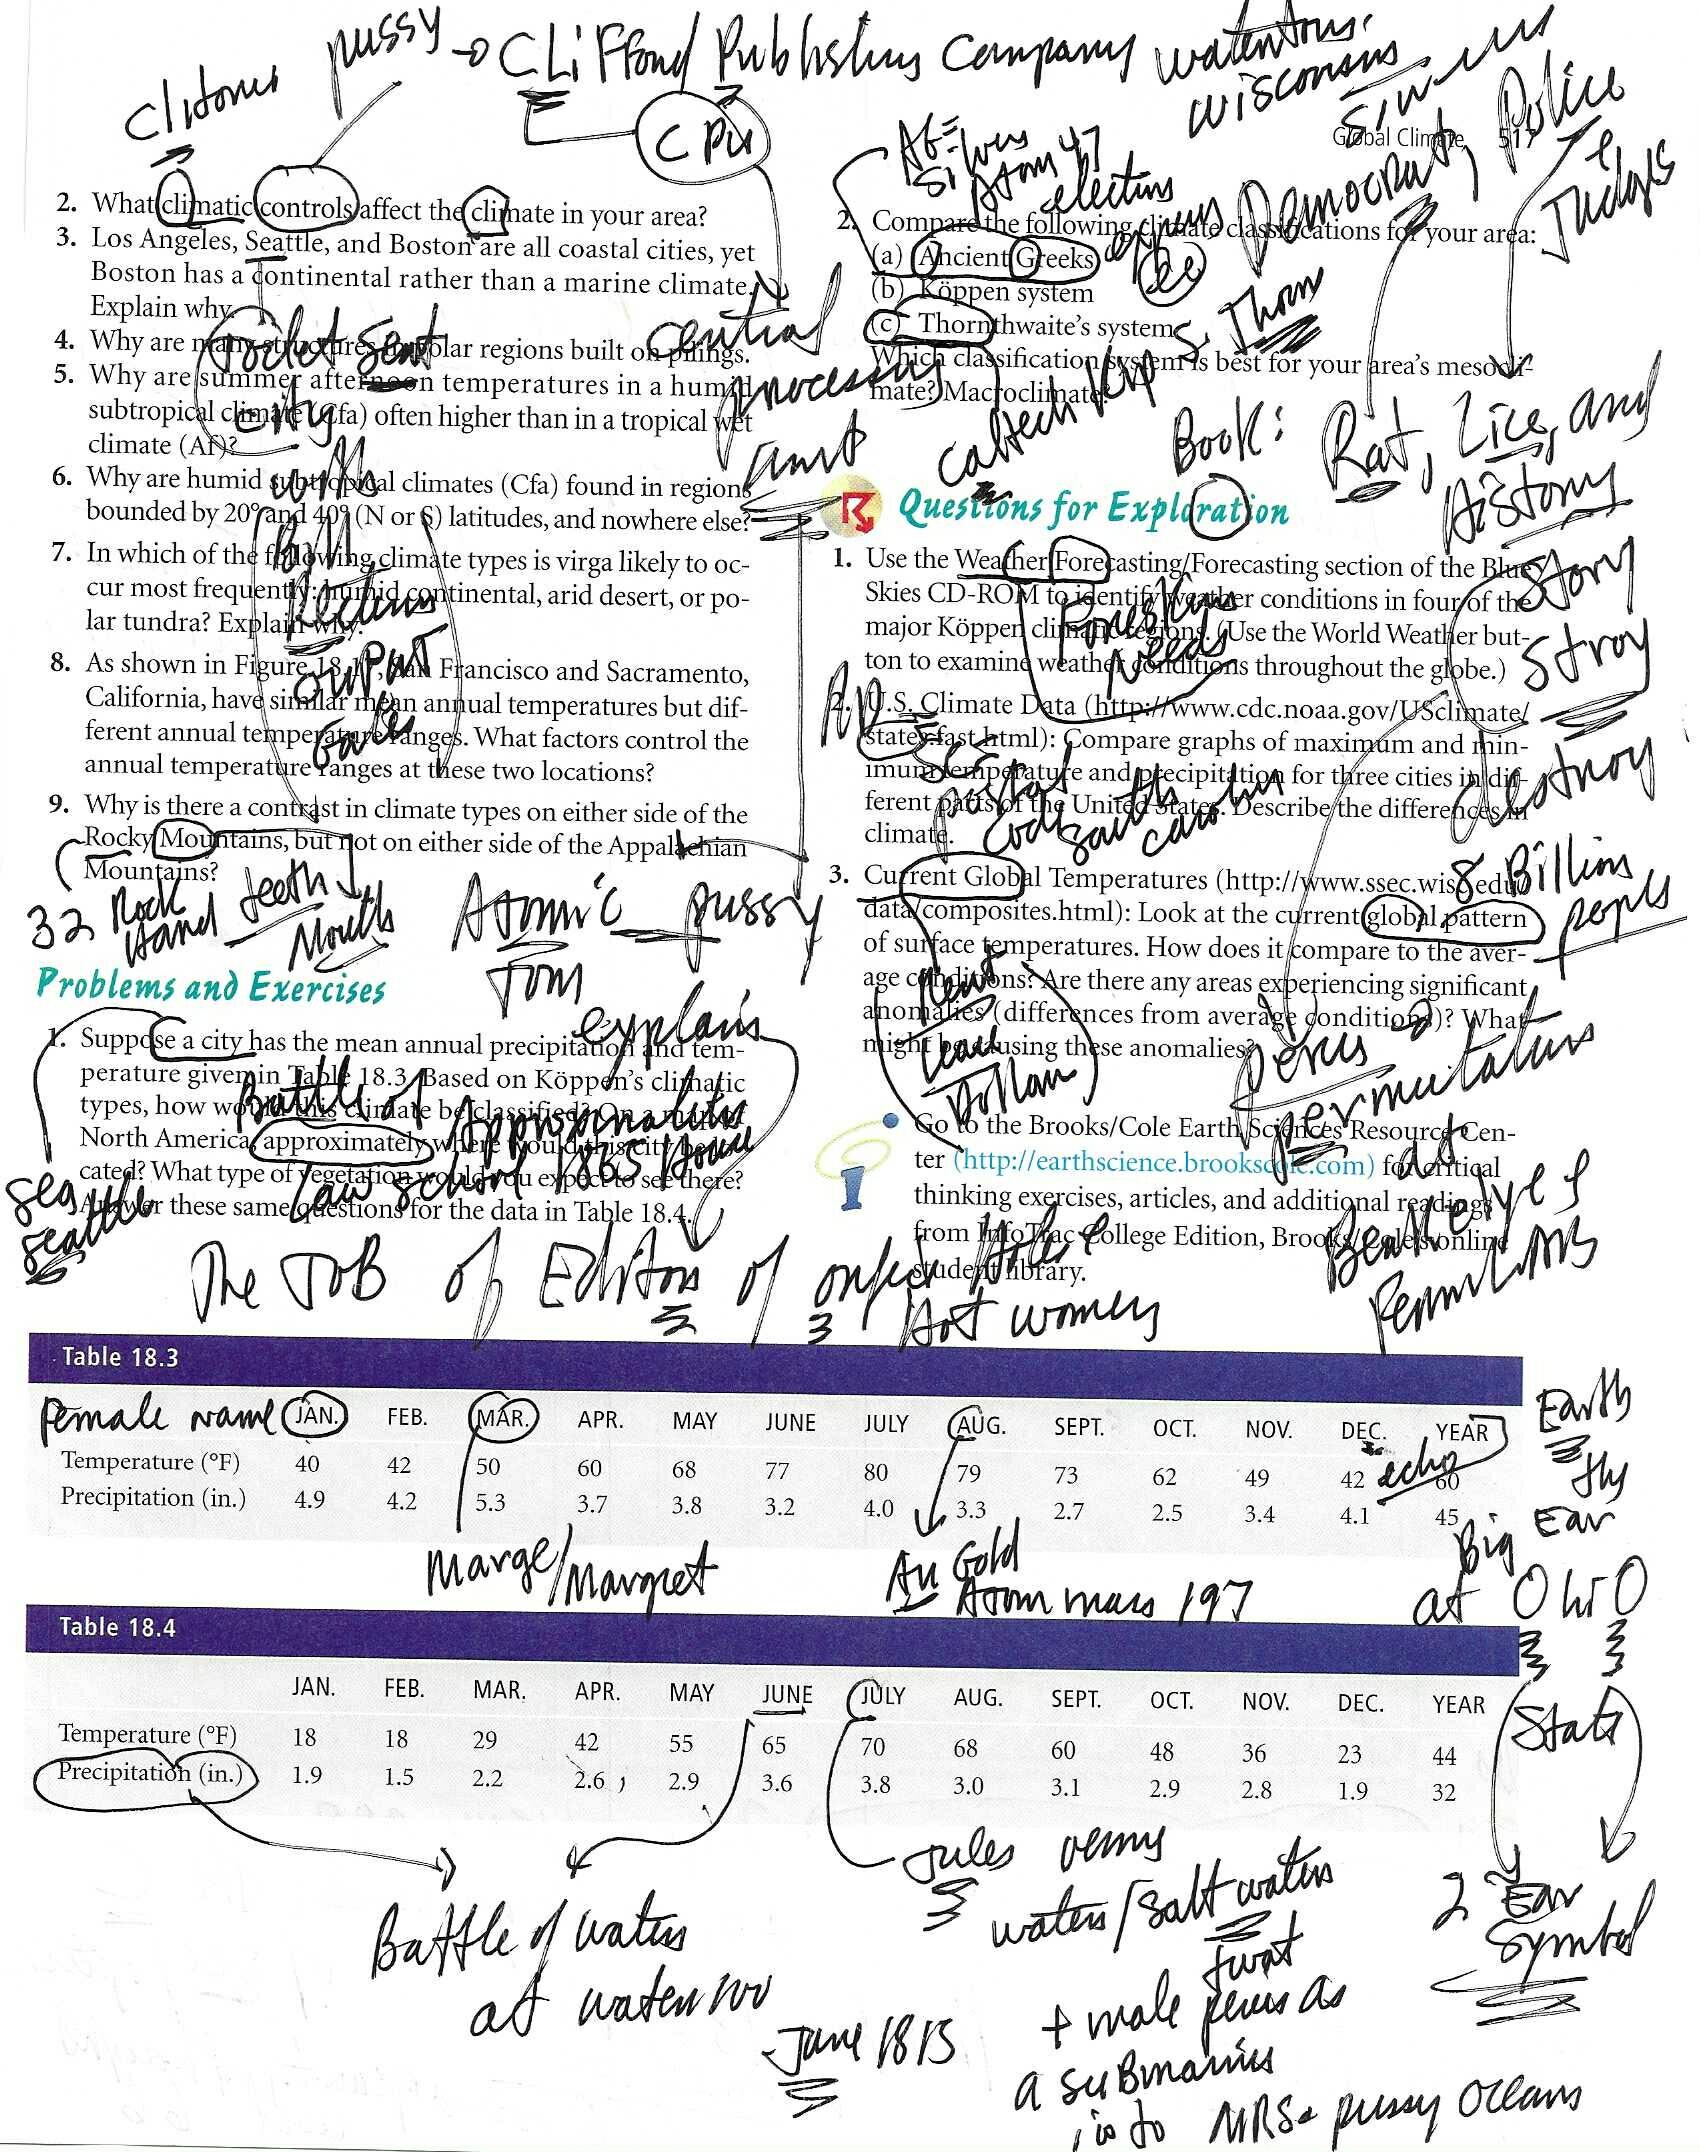 pussy → CLiFFord Publishing Company Watertown.
Wisconsin
clitoris
CPU
Global Climate 517
Police
&
Judges
Democrat,
AG = silver
Atom 47
electrons
2. What climatic controls affect the climate in your area?
3. Los Angeles, Seattle, and Boston are all coastal cities, yet
Boston has a continental rather than a marine climate.
Explain why.
4. Why are many structures in polar regions built on pilings.
5. Why are summer afternoon temperatures in a humid
subtropical climate (Cfa) often higher than in a tropical wet
climate (Af)?
6. Why are humid subtropical climates (Cfa) found in regions
bounded by 20° and 40° (N or S) latitudes, and nowhere else?
7. In which of the following climate types is virga likely to oc-
cur most frequently: humid continental, arid desert, or po-
lar tundra? Explain why.
8. As shown in Figure 18. , San Francisco and Sacramento,
California, have similar mean annual temperatures but dif-
ferent annual temperature ranges. What factors control the
annual temperature ranges at these two locations?
9. Why is there a contrast in climate types on either side of the
Rocky Mountains, but not on either side of the Appalachian
Mountains?
Toilet Seat
City
with
Bill
output
Gates
central
processing
unit
32 Rock
Hard teeth
Mouth
Atomic pussy
Tom
explain
Problems and Exercises
1. Suppose a city has the mean annual precipitation and tem-
perature given in Table 18.3. Based on Köppen's climatic
types, how would this climate be classified? On a map of
North America, approximately where would this city be lo-
cated? What type of vegetation would you expect to see there?
Answer these same questions for the data in Table 18.4.
Battle of Appomattox
Law School 1865 House
sea
seattle
The JOB of Editors of
2. Compare the following climate classifications for your area:
(a) Ancient Greeks
(b) Köppen system
(c) Thornthwaite's system
Which classification system is best for your area's mesocli-
mate? Macroclimate?
S. Thorn
caltech Kip
Book: Rat, Lice, and
History
Story
Stroy
destroy
Questions for Exploration
1. Use the Weather Forecasting/Forecasting section of the Blue
Skies CD-ROM to identify weather conditions in four of the
major Köppen climatic regions. (Use the World Weather but-
ton to examine weather conditions throughout the globe.)
Needs
2. U.S. Climate Data (http://www.cdc.noaa.gov/USclimate/
states.fast.html): Compare graphs of maximum and min-
imum temperature and precipitation for three cities in dif-
ferent parts of the United States. Describe the differences in
climate.
postal
code
south
3. Current Global Temperatures (http://www.ssec.wisc.edu/
data/composites.html): Look at the current global pattern
of surface temperatures. How does it compare to the aver-
age conditions? Are there any areas experiencing significant
anomalies (differences from average conditions)? What
might be causing these anomalies?
8 Billion
people
Dollar
permutations
at
Berkeley
Permutations
Go to the Brooks/Cole Earth Sciences Resource Cen-
ter (http://earthscience.brookscole.com) for critical
thinking exercises, articles, and additional readings
from InfoTrac College Edition, Brooks/Cole's online
student library.
Hole &
Hot women
Table 18.3
Female name JAN. FEB. MAR. APR. MAY JUNE JULY AUG. SEPT. OCT. NOV. DEC. YEAR
Temperature (°F) 40 42 50 60 68 77 80 79 73 62 49 42 60
Precipitation (in.) 4.9 4.2 5.3 3.7 3.8 3.2 4.0 3.3 2.7 2.5 3.4 4.1 45
echo
Marge/Margret
Au Gold
Atom mass 197
Earth
Big Ear
at OhiO
State
2 Ear
symbol
Table 18.4
JAN. FEB. MAR. APR. MAY JUNE JULY AUG. SEPT. OCT. NOV. DEC. YEAR
Temperature (°F) 18 18 29 42 55 65 70 68 60 48 36 23 44
Precipitation (in.) 1.9 1.5 2.2 2.6 2.9 3.6 3.8 3.0 3.1 2.9 2.8 1.9 32
Battle of waters
at waterloo
June 1815
Jules verns
waters/salt waters
twat
+ male penis as
a submarines
is to MRS. pussy oceans